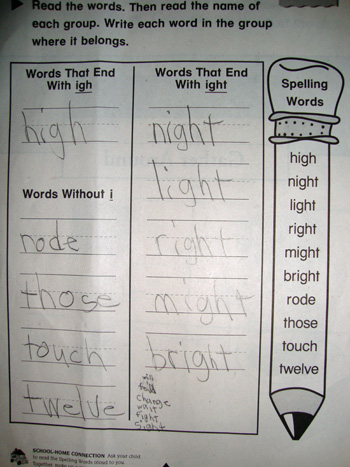 Read the words. Then read the name of
each group. Write each word in the group
where it belongs.
Words That End
With igh
high
Words Without i
rode
those
touch
twelve
Words That End
With ight
night
light
right
might
bright
will
find
change
wait
fight
sight
Spelling
Words
high
night
light
right
might
bright
rode
those
touch
twelve
SCHOOL-HOME CONNECTION Ask your child
to read the Spelling Words aloud to you.